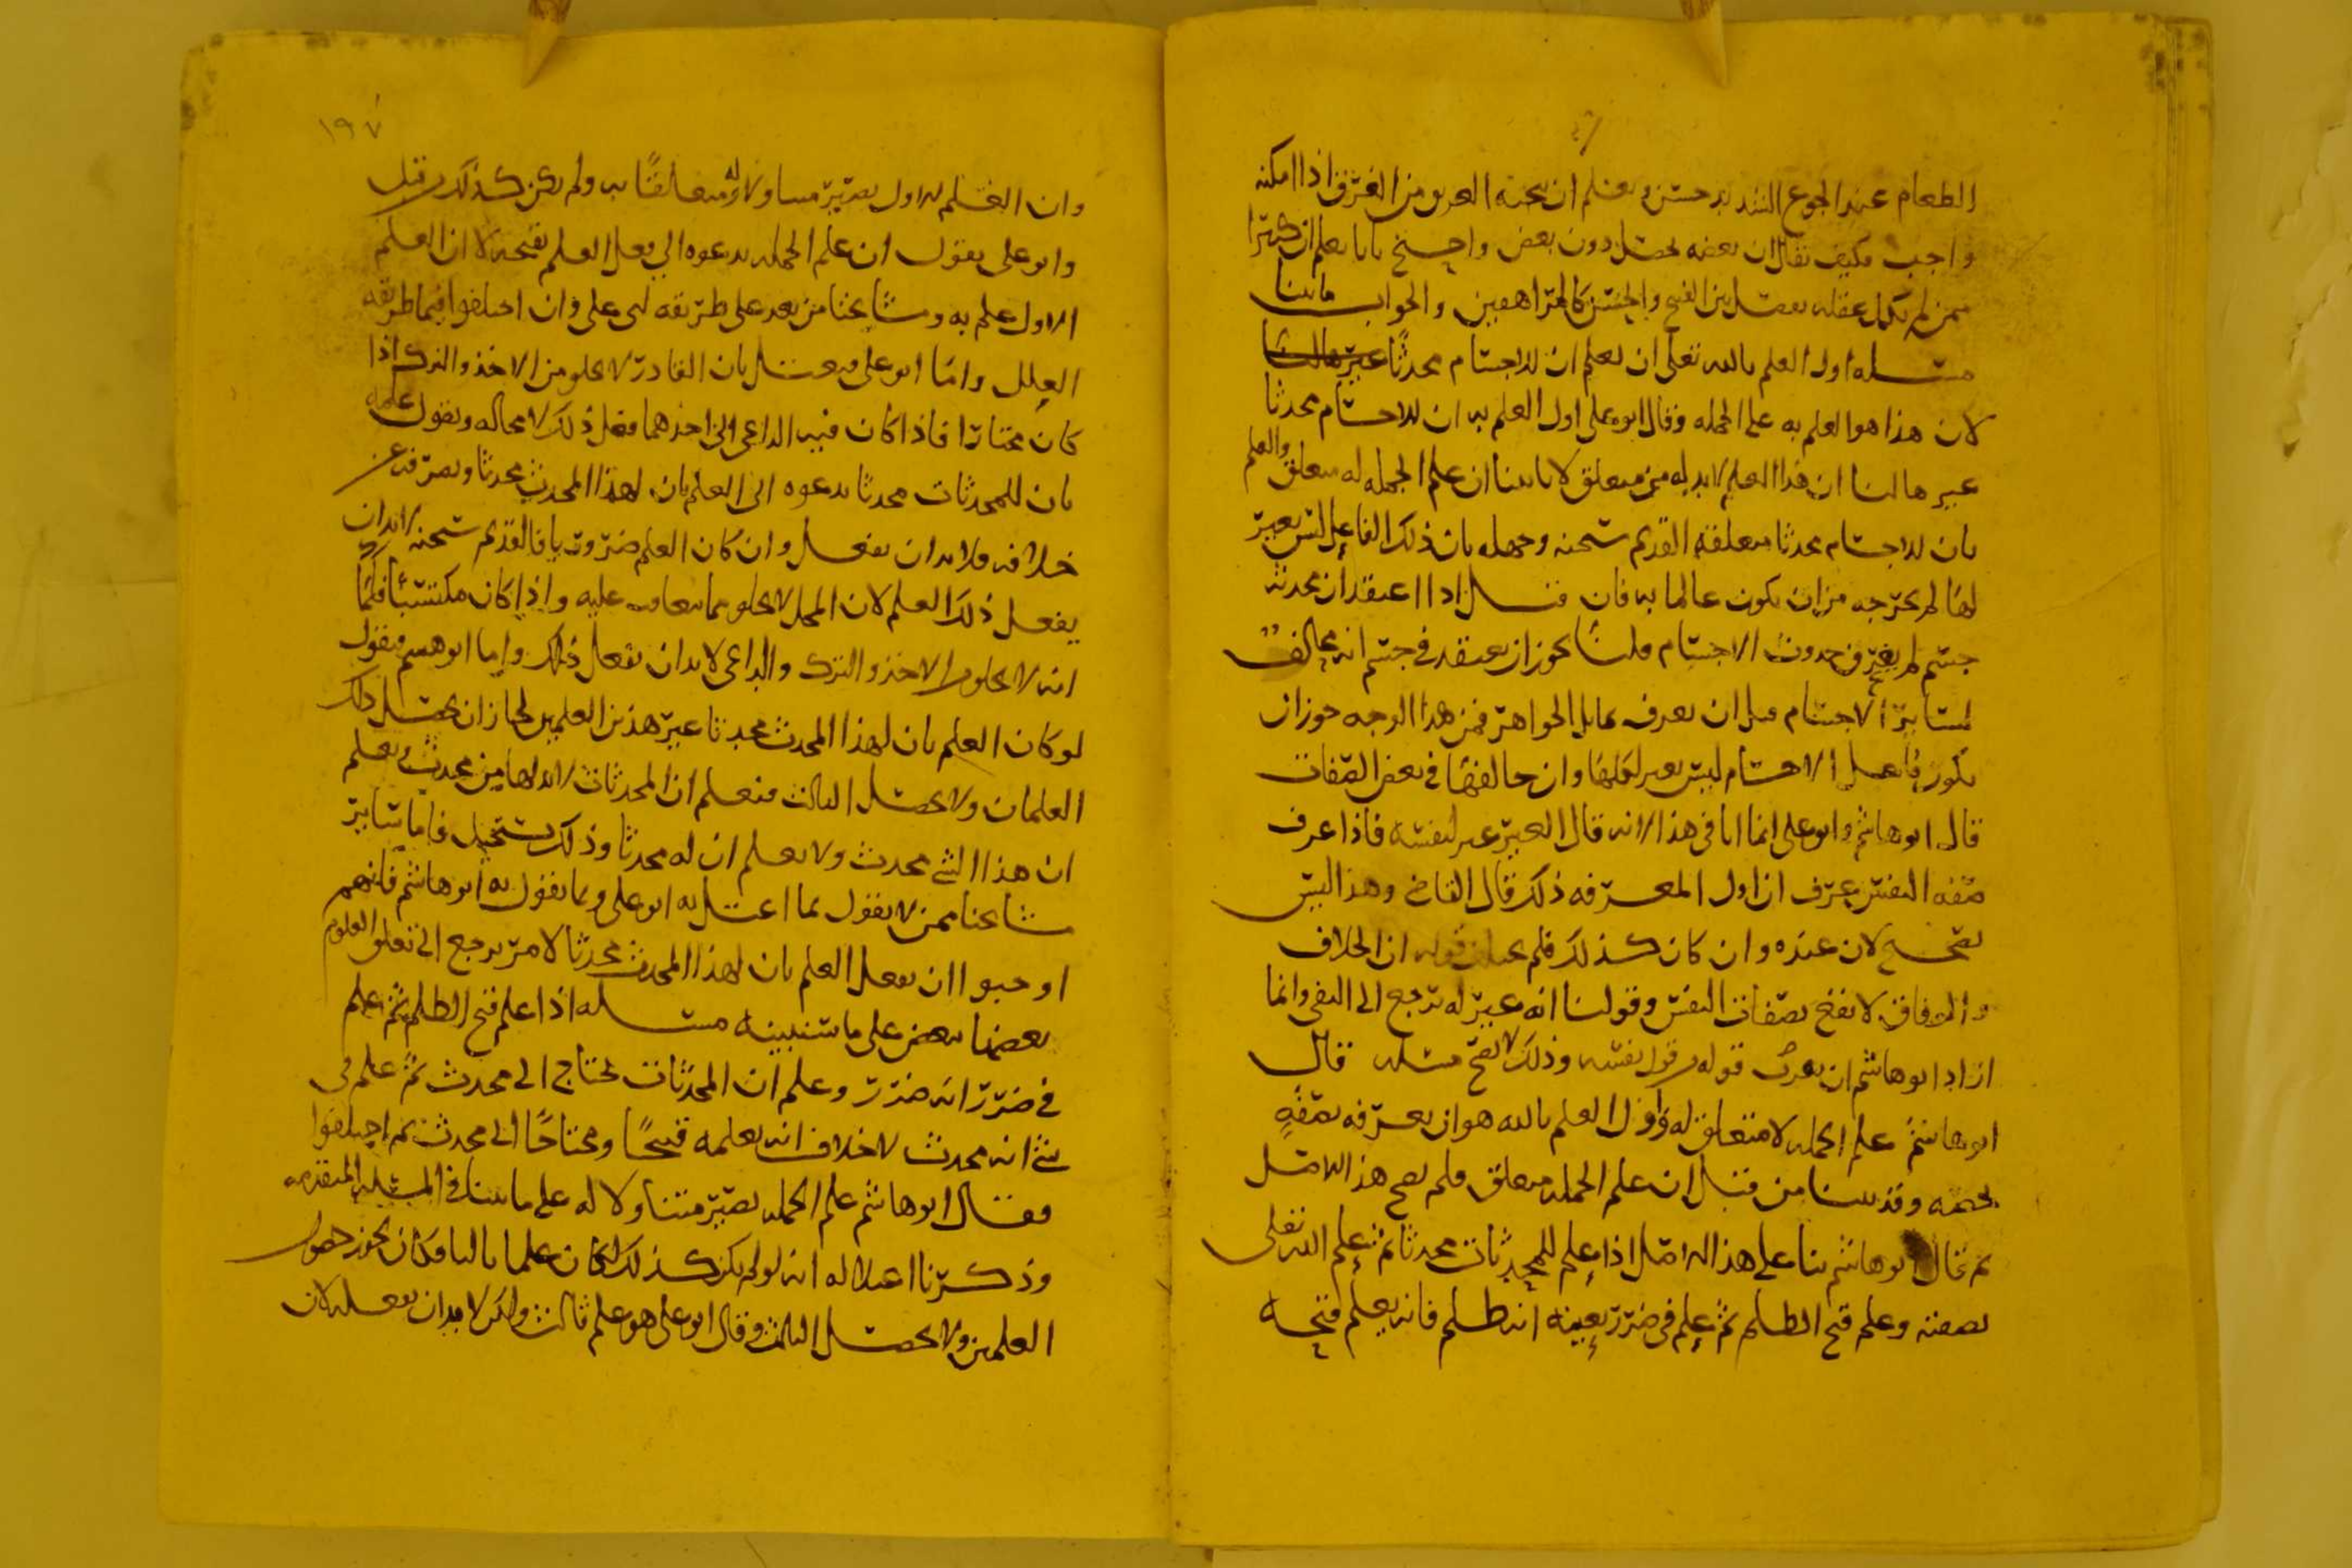 الطعام عند الجوع الشديد حسن ويعلم ان تجنبه العريق من الغرق اذا امكنه
واجب فكيف يقال ان بعضه يحصل دون بعض واحتج بانا نعلم ان كثيرا
ممن لم يكمل عقله يفصل بين القبح والحسن كالمراهقين والجواب ما بينا
مسله اول العلم بالله تعلى ان يعلم ان للاجسام محدثا غيرها
لان هذا هو العلم به على الجمله وقال ابو على اول العلم به ان للاجسام محدثا
غيرها لنا ان هذا العلم لا بد له من متعلق لانا بينا ان علم الجمله له متعلق والعلم
بان للاجسام محدثا متعلقه القديم سبحنه وجهله بان ذلك الفاعل ليس بغير
لها لم يخرجه من ان يكون عالما به فان قيل اذا اعتقد ان محدث
جسم لم يعرف حدوث الاجسام قلنا يجوز ان يعتقد في جسم انه مخالف
لسائر الاجسام قبل ان يعرف تماثل الجواهر فمن هذا الوجه جوز ان
يكون فاعل الاجسام ليس بغير لكلها وان خالفها في بعض الصفات
قال ابو هاشم وابو على انما اتا في هذا لانه قال الغير غير لنفسه فاذا عرف
صفه النفس عرف ان اول المعرفه ذلك قال القاضي وهذا ليس
بصحيح لان عنده وان كان كذلك فلم قوله ان الخلاف
والوفاق لا يقع بصفات النفس وقولنا انه غير له يرجع الى النفي وانما
اراد ابو هاشم ان يعرف قوله قول نفسه وذلك لا يصح مسله قال
ابو هاشم علم الجمله لا متعلق له واول العلم بالله هو ان يعرفه بصفه
تخصه وقد بينا من قبل ان علم الجمله متعلق فلم يصح هذا الاصل
ثم قال ابو هاشم بنا على هذا الاصل اذا علم للمحدثات محدثا ثم علم الله تعلى
بصفته وعلم قبح الظلم ثم علم في ضرر بعينه انه ظلم فانه يعلم قبحه
١٩٧
وان العلم الاول يصير متناولا له ومتعلقا به ولم يكن كذلك من قبل
وابو على يقول ان علم الجمله يدعوه الى فعل العلم بقبحه لا ان العلم
الاول علم به ومشايخنا من بعد على طريقه ابى على وان اختلفوا فيما طريقه
العلل واما ابو على فيعتل بان القادر لا يخلو من الاخذ والترك اذا
كان مختارا فاذا كان فيه الداعي الى احدهما فعل ذلك لا محاله ويقول علمه
بان للمحدثات محدثا يدعوه الى العلم بان لهذا المحدث محدثا ويصرفه عن
خلافه فلا بد ان يفعل وان كان العلم ضروريا فالقديم سبحنه لا بد ان
يفعل ذلك العلم لان المحل لا يخلو مما يتعاقب عليه واذا كان مكتسبا فكما
انه لا يخلو من الاخذ والترك والداعي لا بد ان يفعل ذلك واما ابو هشم فيقول
لو كان العلم بان لهذا المحدث محدثا غير هذين العلمين لجاز ان يحصل ذلك
العلمان ولا يحصل الثالث فيعلم ان المحدثات لا بد لها من محدث ويعلم
ان هذا الشي محدث ولا يعلم ان له محدثا وذلك يستحيل فاما سائر
مشايخنا ممن لا يقول بما اعتل به ابو على وبما يقول به ابو هاشم فانهم
اوجبوا ان يفعل العلم بان لهذا المحدث محدثا لامر يرجع الى تعلق العلوم
بعضها ببعض على ما سنبينه مسله اذا علم قبح الظلم ثم علم
في ضرر انه ضرر وعلم ان المحدثات تحتاج الى محدث ثم علم في
شي انه محدث لا خلاف انه يعلمه قبيحا ومحتاجا الى محدث ثم اختلفوا
فقال ابو هاشم علم الجمله يصير متناولا له على ما بينا في المسله المتقدمه
وذكرنا اعتلاله انه لو لم يكن كذلك لكان علما ثالثا فكان يجوز حصول
العلمين ولا يحصل الثالث وقال ابو على هو علم ثالث ولكن لا بد ان يفعله لان